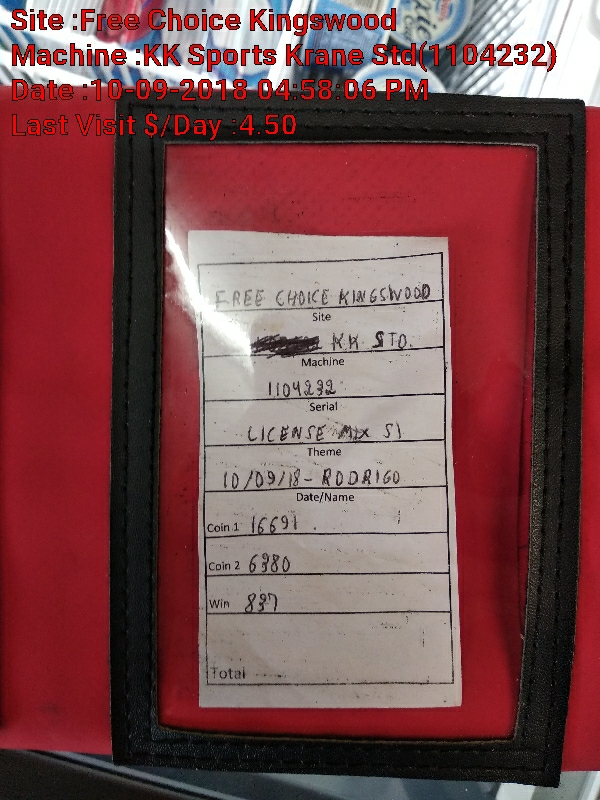 Site :Free Choice Kingswood
Machine :KK Sports Krane Std(1104232)
Date :10-09-2018 04:58:06 PM
Last Visit $/Day :4.50
FREE CHOICE KINGSWOOD
Site
KK STD.
Machine
1104232
Serial
LICENSE MIX $1
Theme
10/09/18- RODRIGO
Date/Name
Coin 1 16691
Coin 2 6980
Win 837
Total